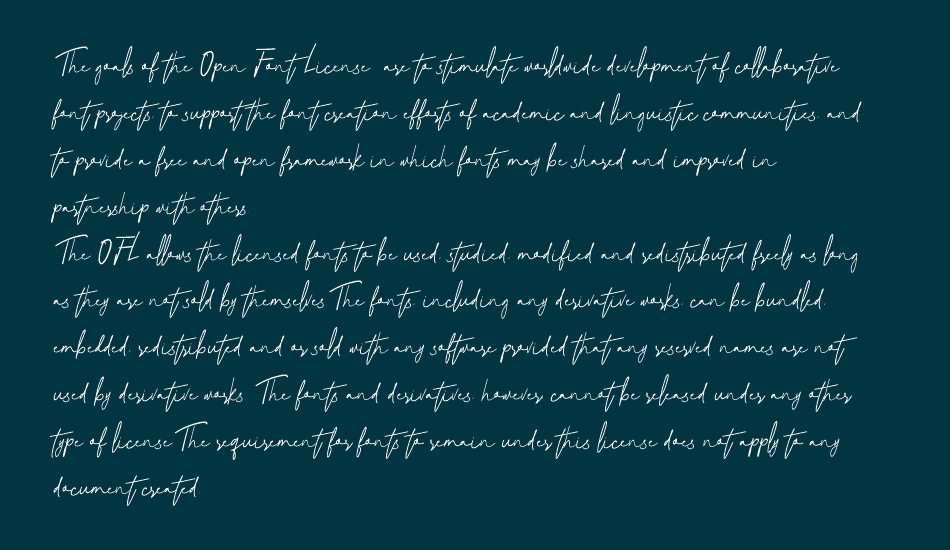 The goals of the Open Font License are to stimulate worldwide development of collaborative
font projects. to support the font creation efforts of academic and linguistic communities. and
to provide a free and open framework in which fonts may be shared and improved in
partnership with others.
The OFL allows the licensed fonts to be used. studied. modified and redistributed freely as long
as they are not sold by themselves The fonts. including any derivative works. can be bundled.
embedded. redistributed and or sold with any software provided that any reserved names are not
used by derivative works. The fonts and derivatives. however. cannot be released under any other
type of license The requirement for fonts to remain under this license does not apply to any
document created.